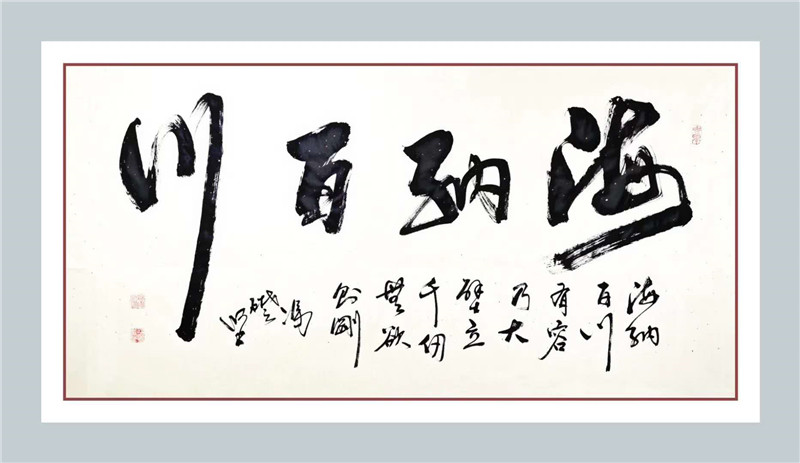 海纳百川
海纳
百川
有容
乃大
壁立
千仞
無欲
则剛
冯